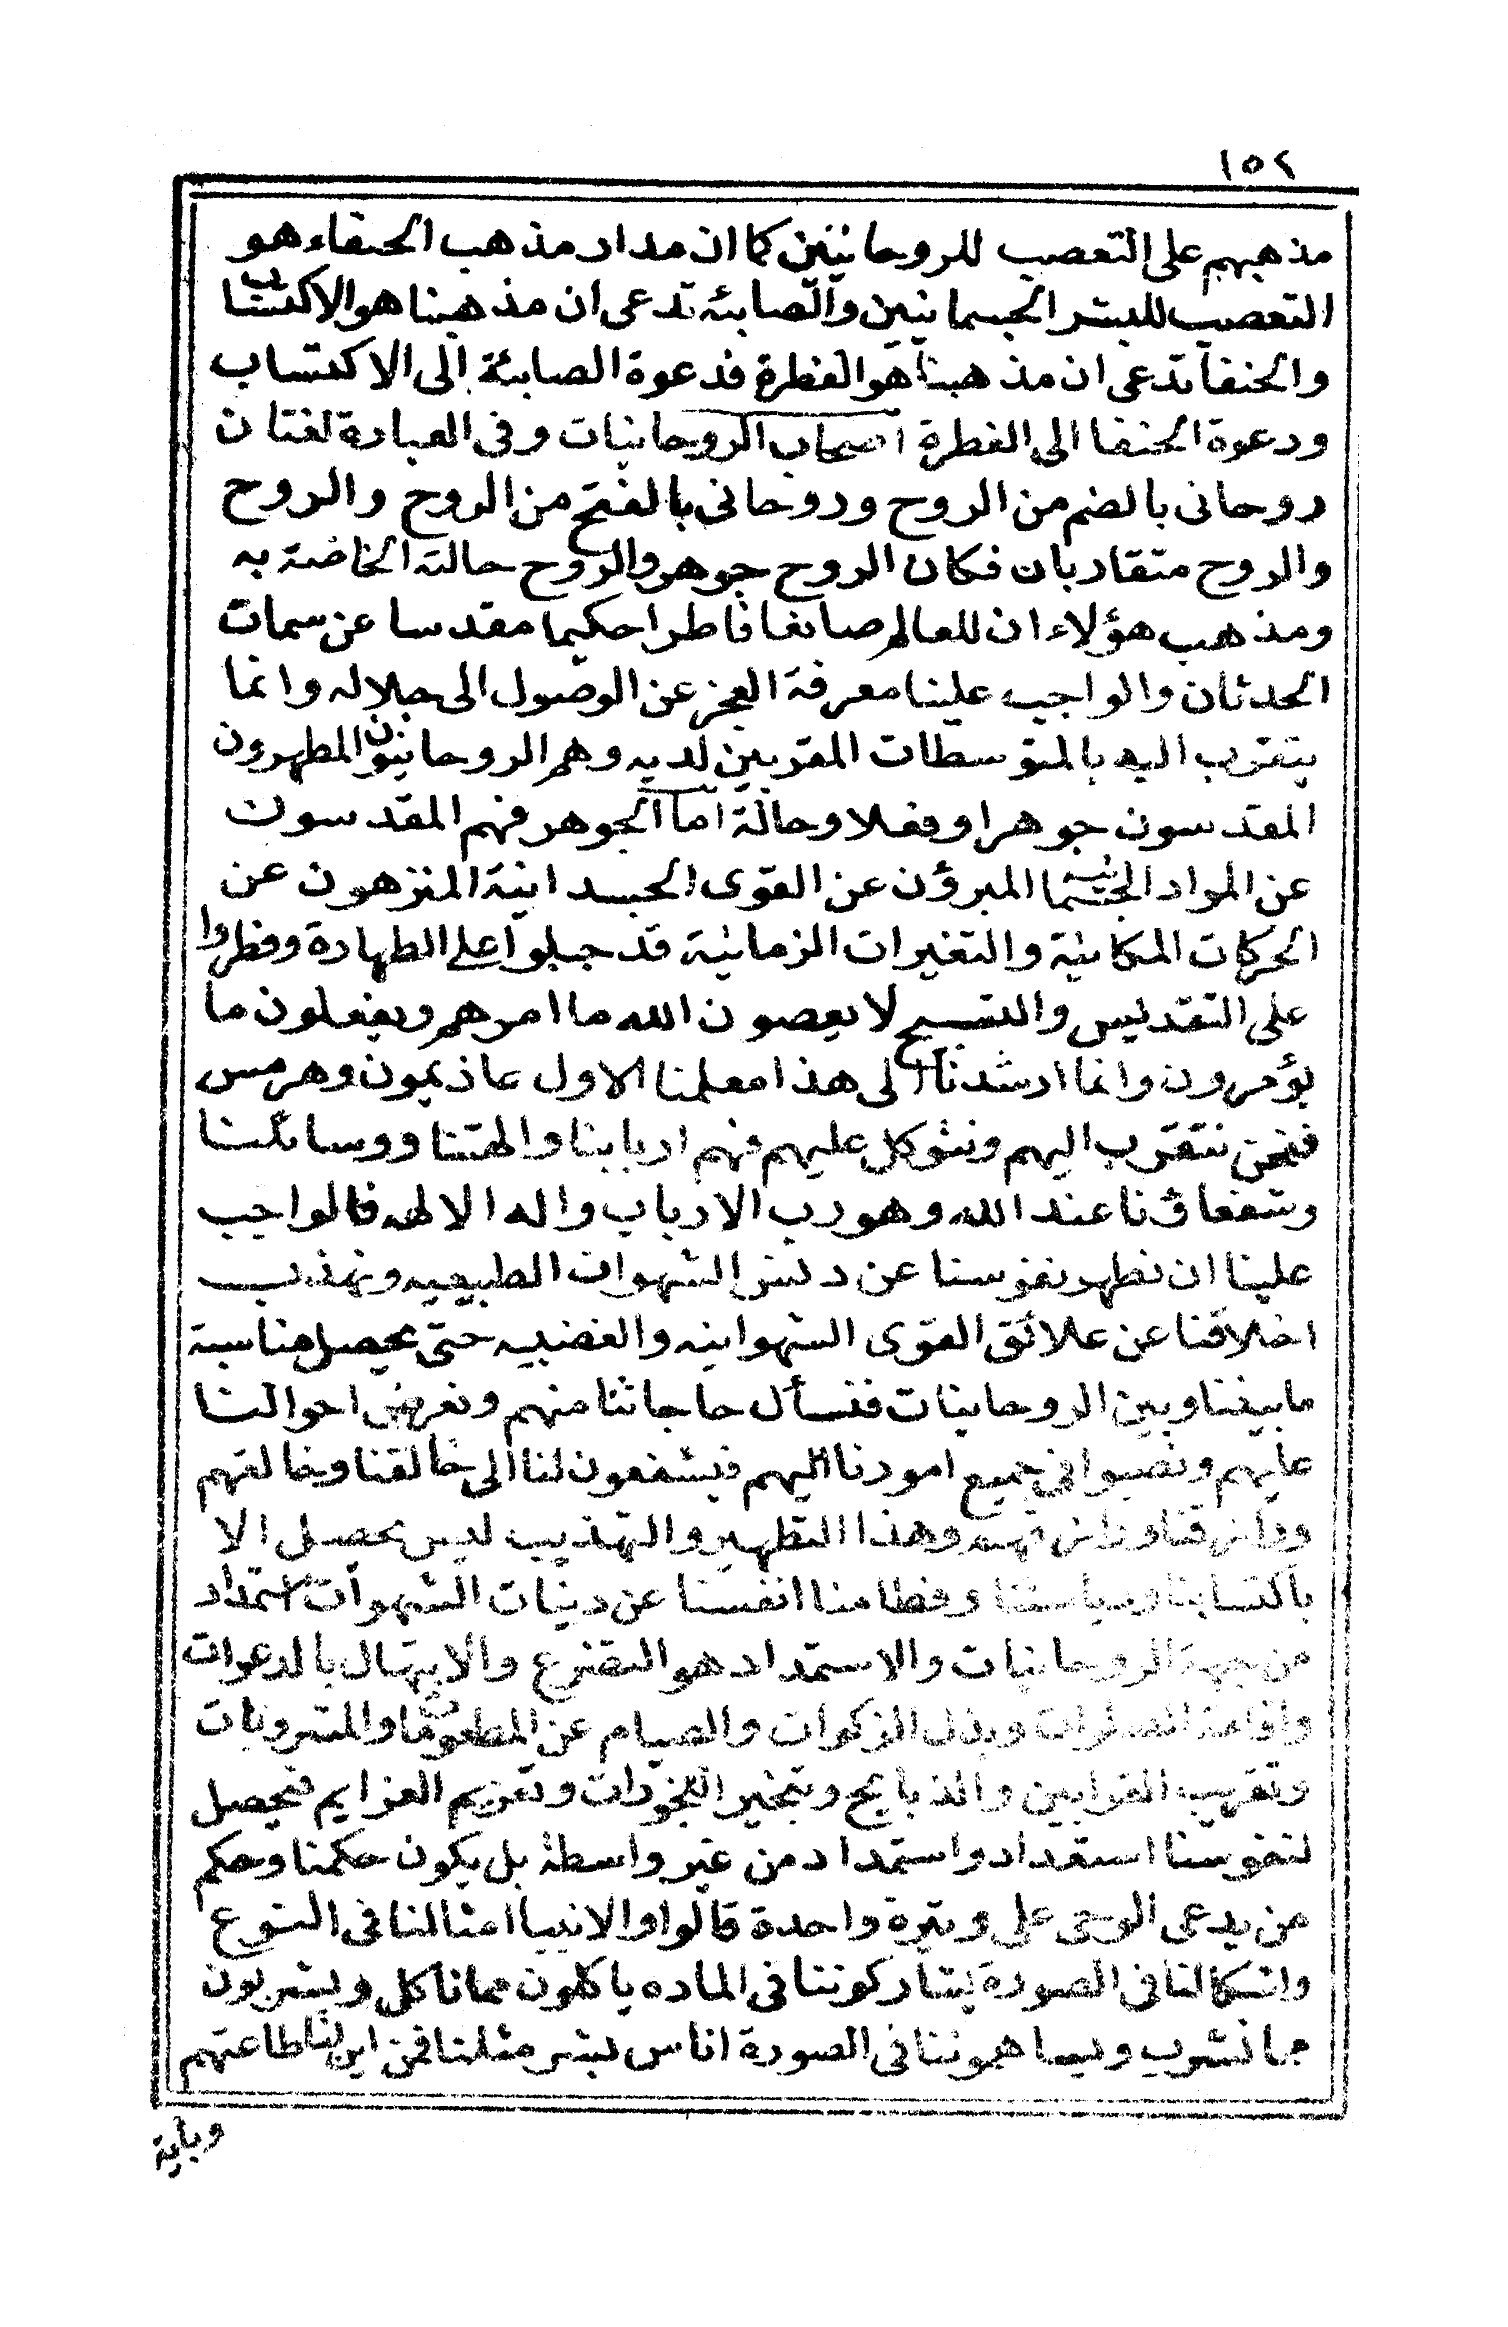 ١٥٢
مذهبهم على التعصب للروحانيين كما ان مدار مذهب الحنفاء هو
التعصب للبشر الجسمانيين والصابئة تدعى ان مذهبنا هو الاكتساب
والحنفا تدعى ان مذهبنا هو الفطرة فدعوة الصابئة الى الاكتساب
ودعوة الحنفا الى الفطرة اصحاب الروحانيات وفى العبارة لغتان
روحانى بالضم من الروح وروحانى بالفتح من الروح والروح
والروح متقاربان فكان الروح جوهر والروح حالته الخاضة به
ومذهب هؤلاء ان للعالم صانعا فاطرا حكيما مقدسا عن سمات
الحدثان والواجب علينا معرفة العجز عن الوصول الى جلاله وانما
يتقرب اليه بالمتوسطات المقربين لديه وهم الروحانيون المطهرون
المقدسون جوهرا وفعلا وحالة اما الجوهر فهم المقدسون
عن المواد الجسمانية المبرؤن عن القوى الجسدانية المنزهون عن
الحركات المكانية والتغيرات الزمانية قد جبلوا على الطهارة وفطروا
على التقديس والتسبيح لا يعصون الله ما امرهم ويفعلون ما
يؤمرون وانما ارشدنا الى هذا معلمنا الاول عاذيمون وهرمس
فنحن نتقرب اليهم ونتوكل عليهم فهم اربابنا والهتنا ووسائلنا
وشفعاؤنا عند الله وهو رب الارباب واله الالهه فالواجب
علينا ان نطهر نفوسنا عن دنس الشهوات الطبيعيه ونهذب
اخلاقنا عن علائق القوى الشهوانيه والغضبيه حتى يحصل مناسبة
ما بيننا وبين الروحانيات فنسأل حاجاتنا منهم ونعرض احوالنا
عليهم ونصبوا فى جميع امورنا اليهم فيشفعون لنا الى خالقنا وخالقهم
ورازقنا ورازقهم وهذا التطهير والتهذيب ليس يحصل الا
باكتسابنا ورياستنا وفطامنا انفسنا عن دنيات الشهوات استمداد
من جهة الروحانيات والاستمداد هو التضرع والابتهال بالدعوات
واقامة الصلوات وبذل الزكوات والصيام عن المطعومات والمشروبات
وتقريب القرابين والذبايح وتبخير البخورات وتعزيم العزايم فيحصل
لنفوسنا استعداد واستمداد من غير واسطة بل يكون حكمنا وحكم
من يدعى الوحى على وتيرة واحدة قالوا والانبيا امثالنا فى النوع
واشكالنا فى الصورة يشاركوننا فى الماده ياكلون مما ناكل ويشربون
مما نشرب ويساهموننا فى الصورة اناس بشر مثلنا فمن اين لنا طاعتهم
وباية